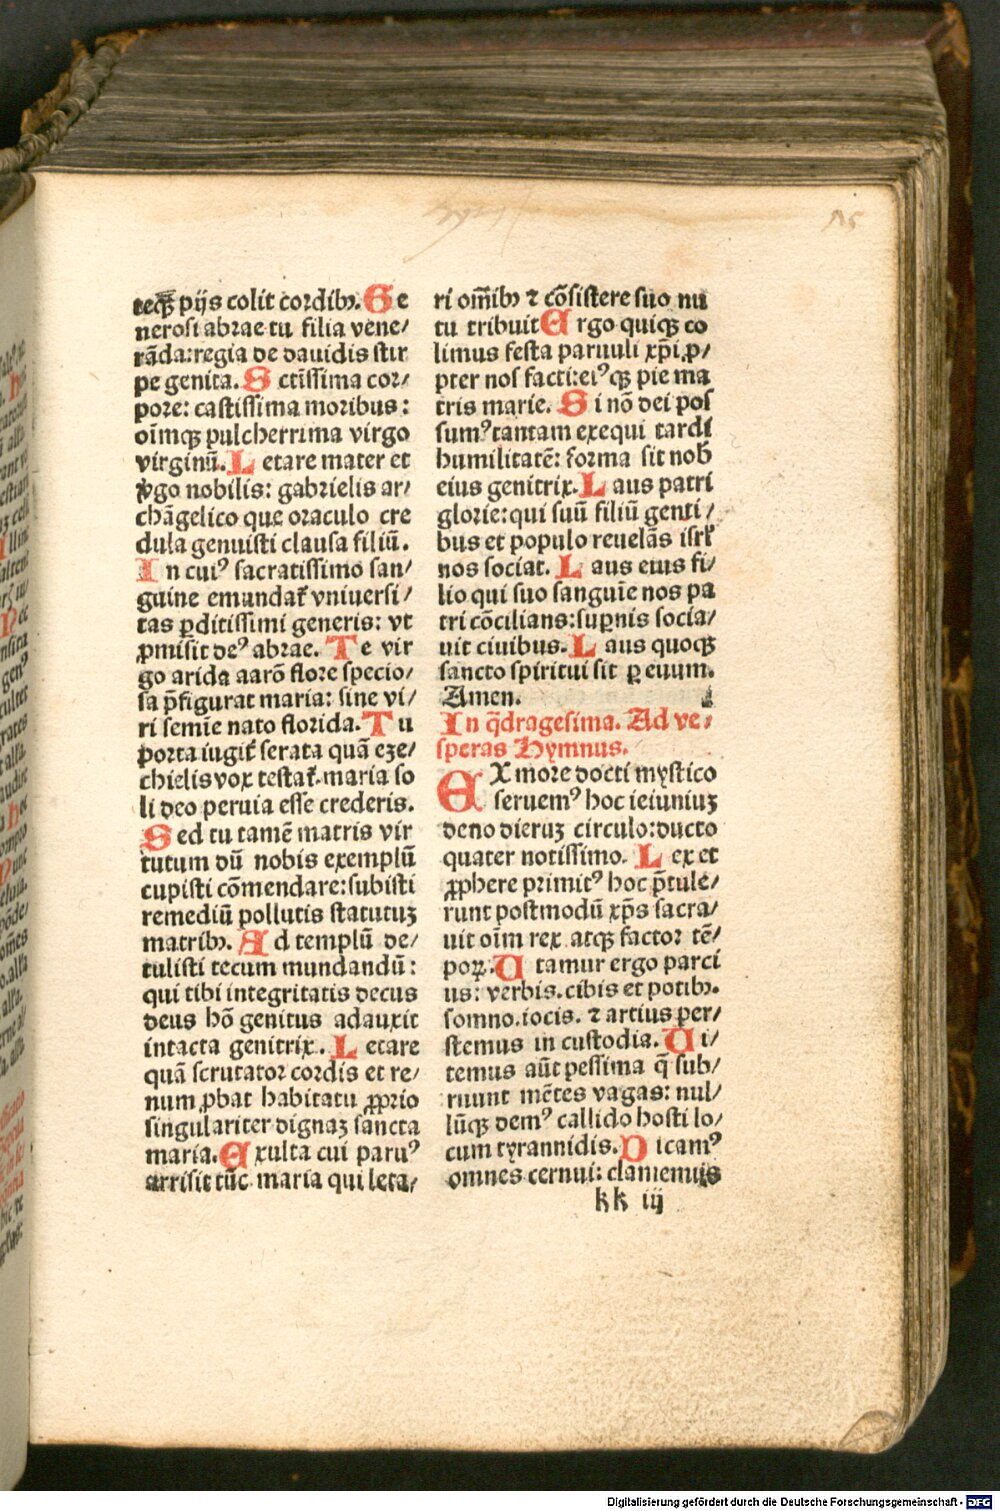 teqꝫ pijs colit cordibꝫ. Ge
nerosi abrae tu filia vene/
rāda: regia de dauidis stir
pe genita. Sctīssima cor/
pore: castissima moribus:
oīmqꝫ pulcherrima virgo
virginū. Letare mater et
v̓go nobilis: gabrielis ar/
chāgelico que oraculo cre
dula genuisti clausa filiū.
In cuiꝰ sacratissimo san/
guine emundat᷑ vniuersi/
tas ꝑditissimi generis: vt
ꝓmisit deꝰ abrae. Te vir
go arida aarō flore specio/
sa p̄figurat maria: sine vi/
ri semīe nato florida. Tu
porta iugit᷑ serata quā eze/
chielis vox testat᷑. maria so
li deo peruia esse crederis.
Sed tu tamē matris vir
tutum dū nobis exemplū
cupisti cōmendare: subisti
remediū pollutis statutuꝫ
matribꝫ. Ad templū de/
tulisti tecum mundandū:
qui tibi integritatis decus
deus hō genitus adauxit
intacta genitrix. Letare
quā scrutator cordis et re/
num ꝓbat habitatu ꝓprio
singulariter dignaꝫ sancta
maria. Exulta cui paruꝰ
arrisit tūc maria qui leta/
ri om̄ibꝫ ⁊ cōsistere suo nu
tu tribuit Ergo quiqꝫ co
limus festa paruuli xp̄i ꝓ/
pter nos facti: eiꝰqꝫ pie ma
tris marie. Si nō dei pos
sumꝰ tantam exequi tardi
humilitatē: forma sit nob̄
eius genitrix. Laus patri
glorie: qui suū filiū genti/
bus et populo reuelās isrl̄
nos sociat. Laus eius fi/
lio qui suo sanguīe nos pa
tri cōcilians: suꝑnis socia/
uit ciuibus. Laus quoqꝫ
sancto spiritui sit ꝑ euum.
Amen.
In q̄dragesima. Ad ve/
speras Hymnus.
EX more docti mystico
seruemꝰ hoc ieiuniuꝫ
deno dieruꝫ circulo: ducto
quater notissimo. Lex et
ꝓphete primitꝰ hoc p̄tule/
runt postmodū xp̄s sacra/
uit oīm rex atqꝫ factor tē/
poꝝ. Utamur ergo parci
us: verbis. cibis et potibꝫ.
somno. iocis. ⁊ artius ꝑer/
stemus in custodia. Ui/
temus aūt pessima q̄ sub/
ruunt mētes vagas: nul/
lūqꝫ demꝰ callido hosti lo/
cum tyrannidis. Dicamꝰ
omnes cernui: clamemus
kk iij
Digitalisierung gefördert durch die Deutsche Forschungsgemeinschaft - DFG